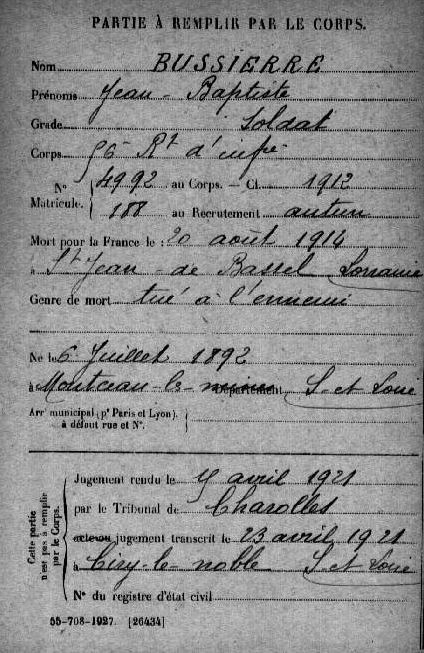 PARTIE À REMPLIR PAR LE CORPS.
Nom BUSSIERRE
Prénoms Jean-Baptiste
Grade Soldat
Corps 56 Rt d'infie
N° Matricule. { 4992 au Corps. — Cl. 1912
188 au Recrutement autun
Mort pour la France le : 20 août 1914
à St Jean-de Bassel Lorraine
Genre de mort tué à l'ennemi
Né le 6 Juillet 1892
à Montceau-le-mines Département S-et Loire
Arr municipal (pr Paris et Lyon), à défaut rue et N°. {
Cette partie n'est pas à remplir par le Corps.
Jugement rendu le 15 avril 1921
par le Tribunal de Charolles
acte ou jugement transcrit le 23 avril 1921
à Ciry-le-noble S-et Loire
N° du registre d'état civil
55-708-1927. [26434]